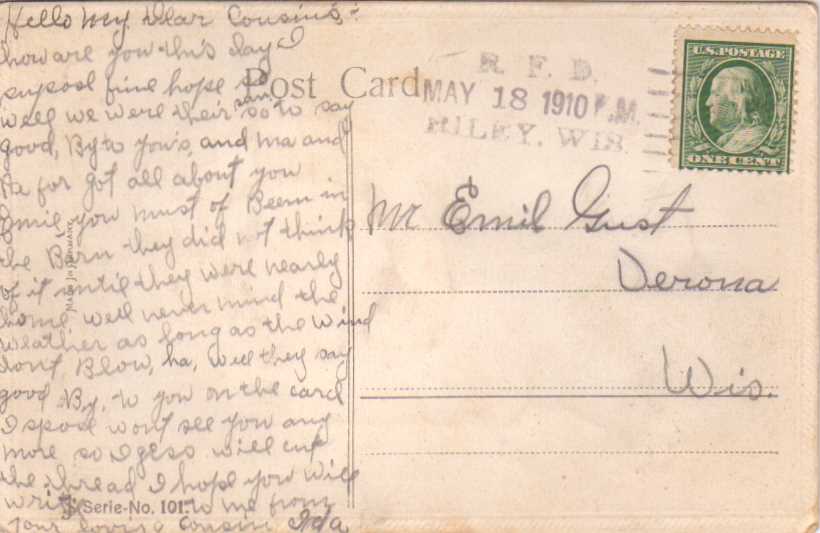 Hello My Dear Cousins:-
how are you this day I
supose fine hope
Well we were their so to say
good, By to you's, and ma and
Pa for got all about you
Emil you must of Been in
the Barn they did not think
of it until they were nearly
home well never mind the
weather as long as the wind
dont Blow, ha, well they say
good By, to you on the card
I spose wont see you any
more so I gess will cut
the thread I hope you will
write to me from
your loving Cousin Ida
Made in Germany
Serie-No. 101.
Post Card
R. F. D.
MAY 18 1910 P.M.
RILEY, WIS.
U.S. POSTAGE
ONE CENT
Mr Emil Gust
Verona
Wis.